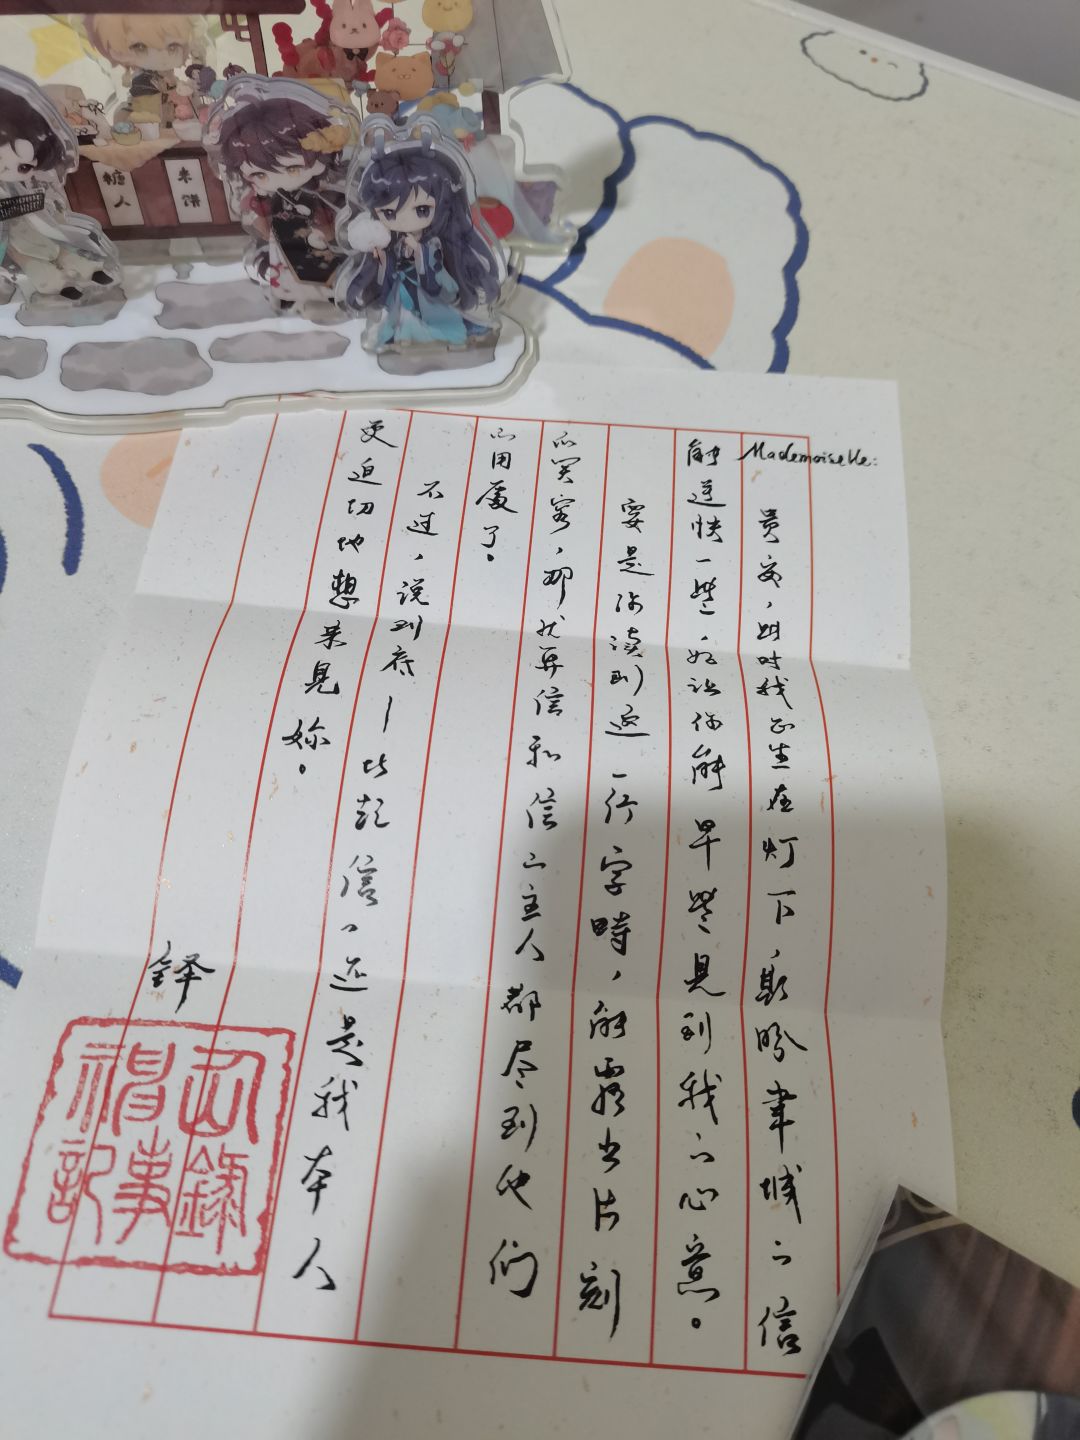 糖人
Mademoiselle:
夤夜，此时我正坐在灯下，期盼聿城的信
能送快一些，好让你能早些见到我的心意。
要是你读到这一行字時，能露出片刻
的笑容，那就算信和信的主人都尽到他们
的用處了。
不过，说到底—比起信，还是我本人
更迫切地想来見妳。
铎